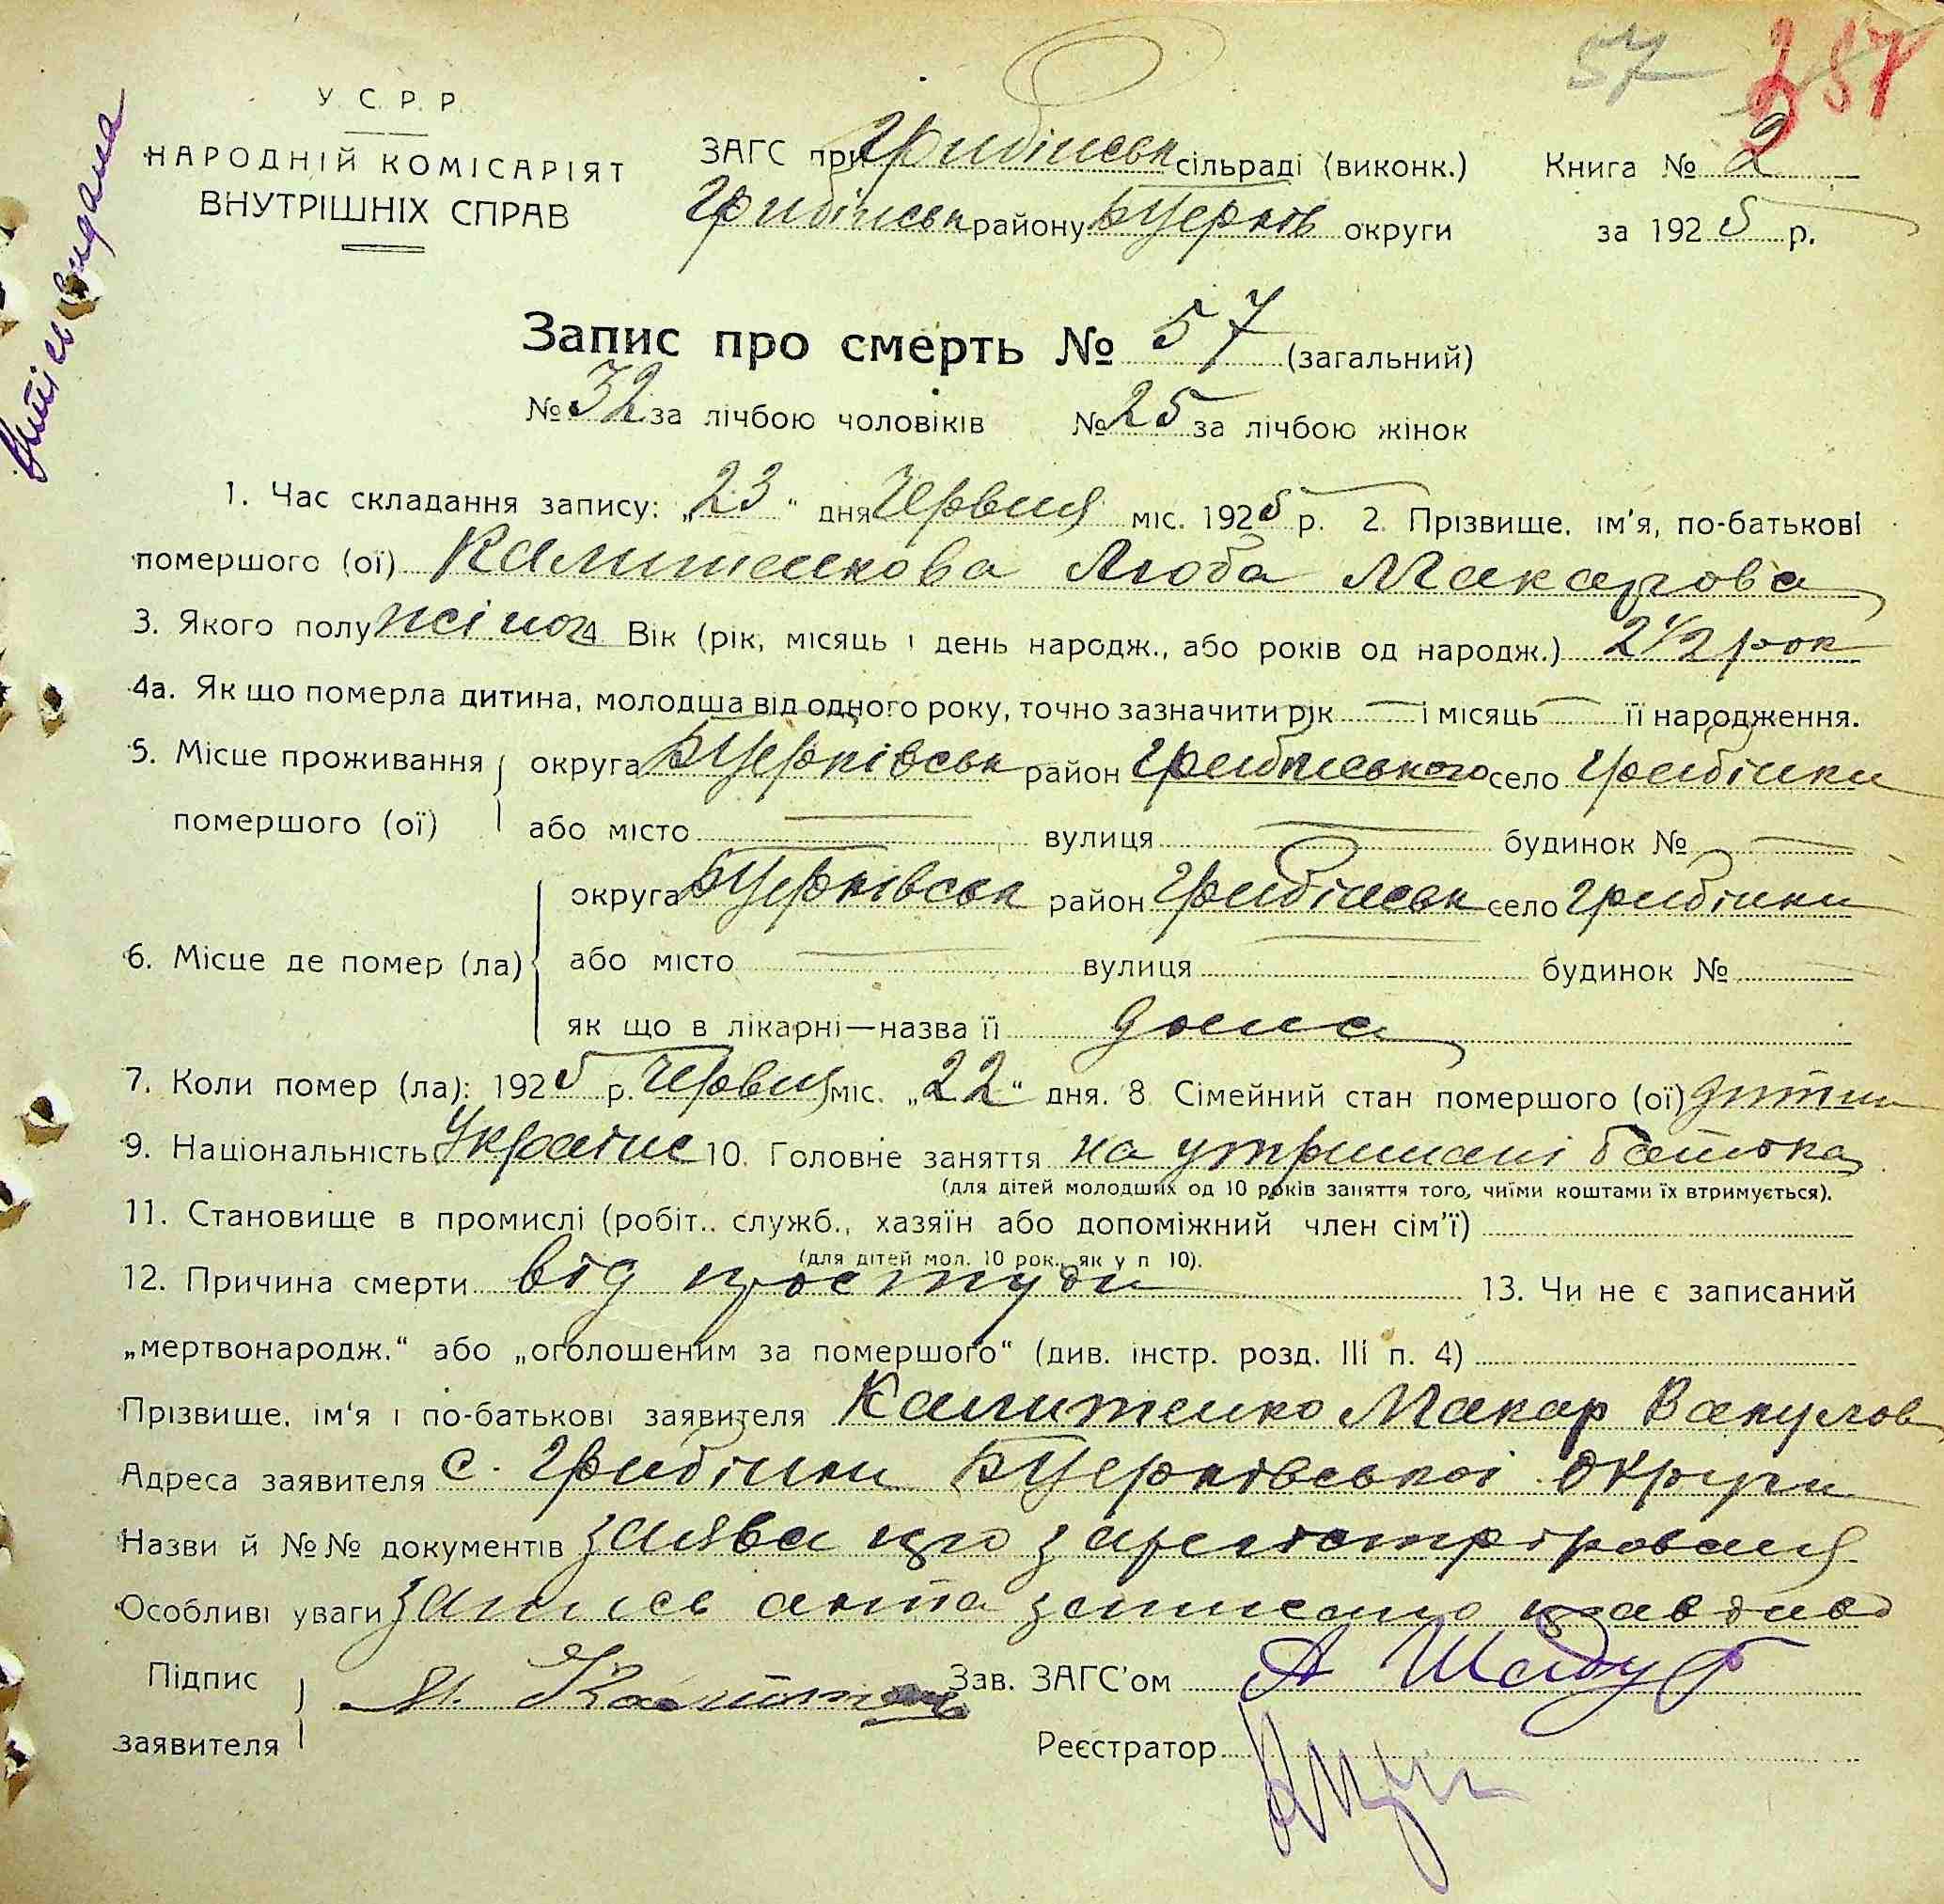 57 287
витяг видана
У. С. Р. Р.
НАРОДНІЙ КОМІСАРІЯТ
ВНУТРІШНІХ СПРАВ
ЗАГС при Гребінськ сільраді (виконк.) Книга № 2
Гребінськ району БЦерків округи за 1925 р.
Запис про смерть № 57 (загальний)
№ 32 за лічбою чоловіків № 25 за лічбою жінок
1. Час складання запису: „23“ дня Червня міс. 1925 р. 2. Прізвище, ім'я, по-батькові
помершого (ої) Калитенкова Люба Макарова
3. Якого полу жіноч 4. Вік (рік, місяць і день народж., або років од народж.) 2 1/2 рок
4а. Як що померла дитина, молодша від одного року, точно зазначити рік — і місяць — її народження.
5. Місце проживання помершого (ої) округа БЦерківськ район Гребінського село Гребінки
або місто — вулиця — будинок № —
6. Місце де помер (ла) округа БЦерківськ район Гребінськ село Гребінки
або місто — вулиця — будинок №
як що в лікарні—назва її дома
7. Коли помер (ла): 1925 р. Червня міс. „22“ дня. 8. Сімейний стан помершого (ої) дитин
9. Національність Україне 10. Головне заняття на утримані батька
(для дітей молодших од 10 років заняття того, чиїми коштами їх втримується).
11. Становище в промислі (робіт., служб., хазяїн або допоміжний член сім'ї)
(для дітей мол. 10 рок., як у п 10).
12. Причина смерти від простуди 13. Чи не є записаний
„мертвонародж.“ або „оголошеним за помершого“ (див. інстр. розд. III п. 4)
Прізвище, ім'я і по-батькові заявителя Калитенко Макар Вакулов
Адреса заявителя с. Гребінки БЦерківської округи
Назви й №№ документів заява про зарегістрірованя
Особливі уваги запись акта записано правдиво
Підпис заявителя М. Калит Зав. ЗАГС'ом А
Реєстратор